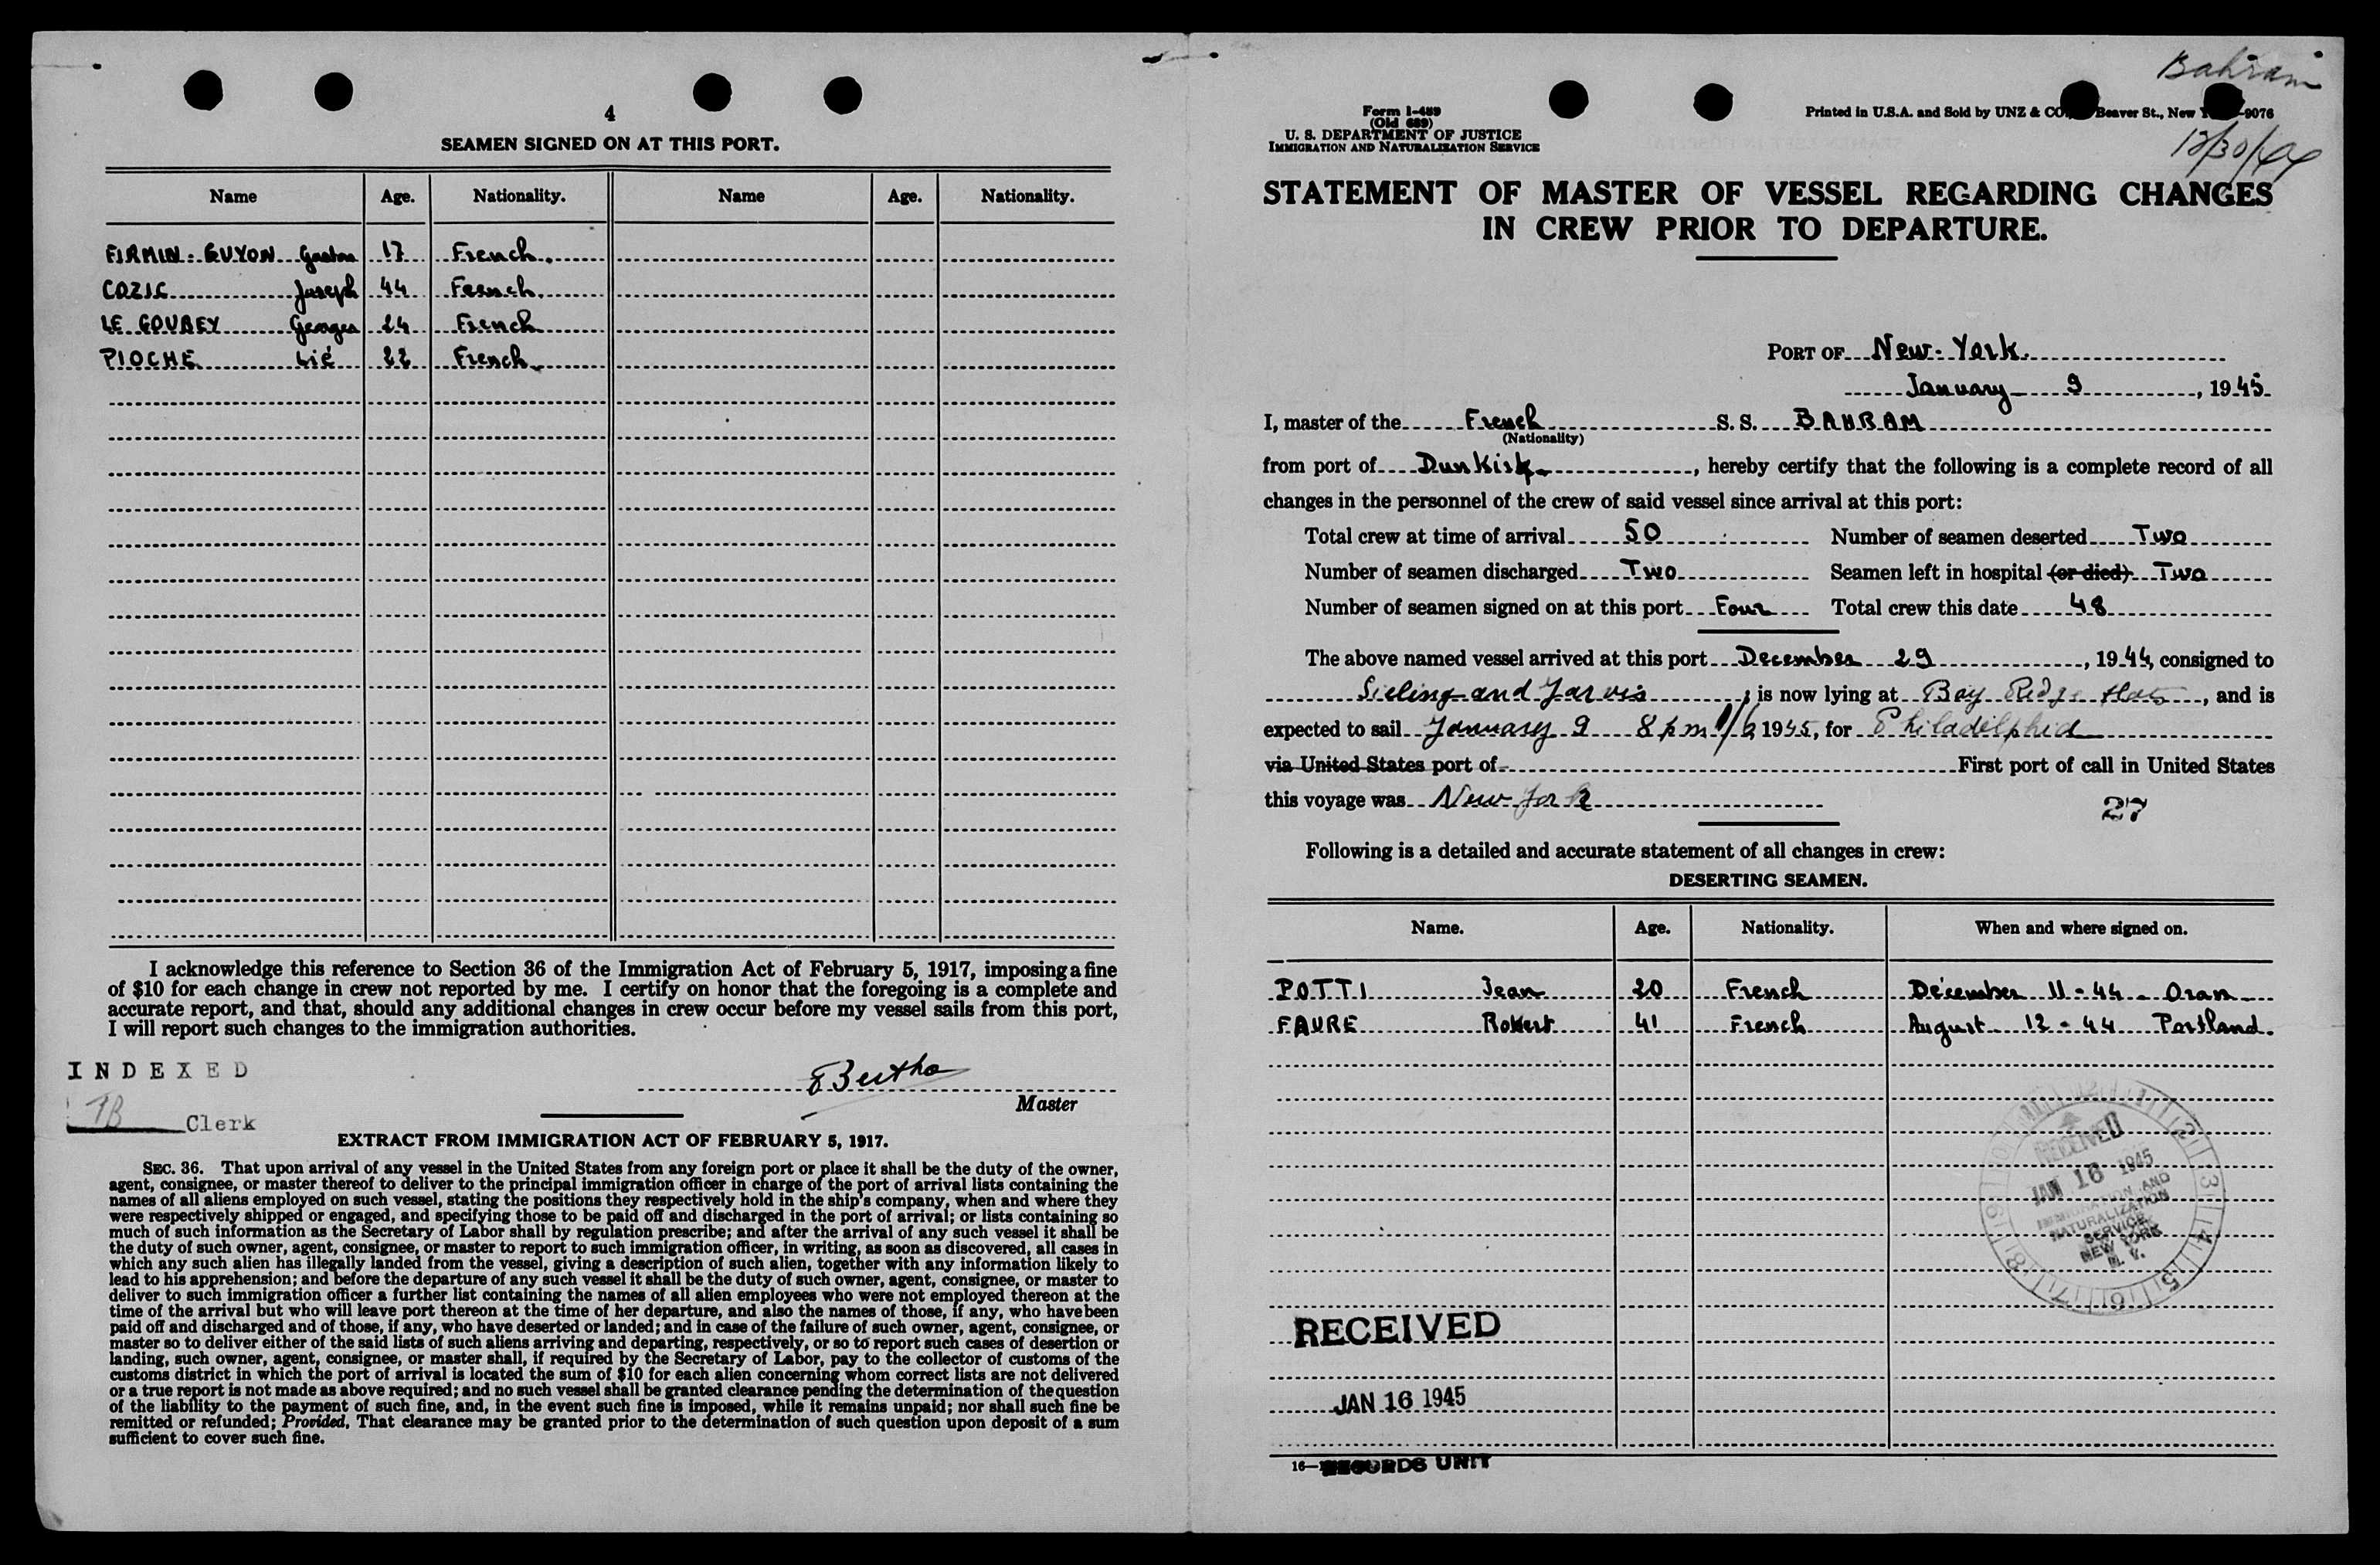 4
SEAMEN SIGNED ON AT THIS PORT.
Name Age. Nationality. Name Age. Nationality.
FIRMIN-GUYON Gaston 17 French.
COZIC Joseph 44 French.
LE GOUBEY Georges 24 French
PIOCHE Lié 22 French
I acknowledge this reference to Section 36 of the Immigration Act of February 5, 1917, imposing a fine
of $10 for each change in crew not reported by me. I certify on honor that the foregoing is a complete and
accurate report, and that, should any additional changes in crew occur before my vessel sails from this port,
I will report such changes to the immigration authorities.
INDEXED
Bertho
Master
Clerk
EXTRACT FROM IMMIGRATION ACT OF FEBRUARY 5, 1917.
SEC. 36. That upon arrival of any vessel in the United States from any foreign port or place it shall be the duty of the owner,
agent, consignee, or master thereof to deliver to the principal immigration officer in charge of the port of arrival lists containing the
names of all aliens employed on such vessel, stating the positions they respectively hold in the ship's company, when and where they
were respectively shipped or engaged, and specifying those to be paid off and discharged in the port of arrival; or lists containing so
much of such information as the Secretary of Labor shall by regulation prescribe; and after the arrival of any such vessel it shall be
the duty of such owner, agent, consignee, or master to report to such immigration officer, in writing, as soon as discovered, all cases in
which any such alien has illegally landed from the vessel, giving a description of such alien, together with any information likely to
lead to his apprehension; and before the departure of any such vessel it shall be the duty of such owner, agent, consignee, or master to
deliver to such immigration officer a further list containing the names of all alien employees who were not employed thereon at the
time of the arrival but who will leave port thereon at the time of her departure, and also the names of those, if any, who have been
paid off and discharged and of those, if any, who have deserted or landed; and in case of the failure of such owner, agent, consignee, or
master so to deliver either of the said lists of such aliens arriving and departing, respectively, or so to report such cases of desertion or
landing, such owner, agent, consignee, or master shall, if required by the Secretary of Labor, pay to the collector of customs of the
customs district in which the port of arrival is located the sum of $10 for each alien concerning whom correct lists are not delivered
or a true report is not made as above required; and no such vessel shall be granted clearance pending the determination of the question
of the liability to the payment of such fine, and, in the event such fine is imposed, while it remains unpaid; nor shall such fine be
remitted or refunded; Provided, That clearance may be granted prior to the determination of such question upon deposit of a sum
sufficient to cover such fine.
Bahram
12/30/44
Form I-489
(Old 689)
U. S. DEPARTMENT OF JUSTICE
IMMIGRATION AND NATURALIZATION SERVICE
Printed in U.S.A. and Sold by UNZ & CO. Beaver St., New 9076
STATEMENT OF MASTER OF VESSEL REGARDING CHANGES
IN CREW PRIOR TO DEPARTURE.
PORT OF New-York.
January 9, 1945
I, master of the French S. S. BAHRAM
(Nationality)
from port of Dunkirk, hereby certify that the following is a complete record of all
changes in the personnel of the crew of said vessel since arrival at this port:
Total crew at time of arrival 50 Number of seamen deserted Two
Number of seamen discharged Two Seamen left in hospital (or died) Two
Number of seamen signed on at this port Four Total crew this date 48
The above named vessel arrived at this port December 29, 1944, consigned to
Sieling and Jarvis; is now lying at Bay Ridge flats, and is
expected to sail January 9 8 pm 1945, for Philadelphia
via United States port of First port of call in United States
this voyage was New York
27
Following is a detailed and accurate statement of all changes in crew:
DESERTING SEAMEN.
Name. Age. Nationality. When and where signed on.
POTTI Jean 20 French Décember 11-44 - Oran
FAURE Robert 41 French August 12-44 Portland.
RECEIVED
JAN 16 1945
IMMIGRATION AND
NATURALIZATION
SERVICE
NEW YORK
N. Y.
RECEIVED
JAN 16 1945
16—
RECORDS UNIT